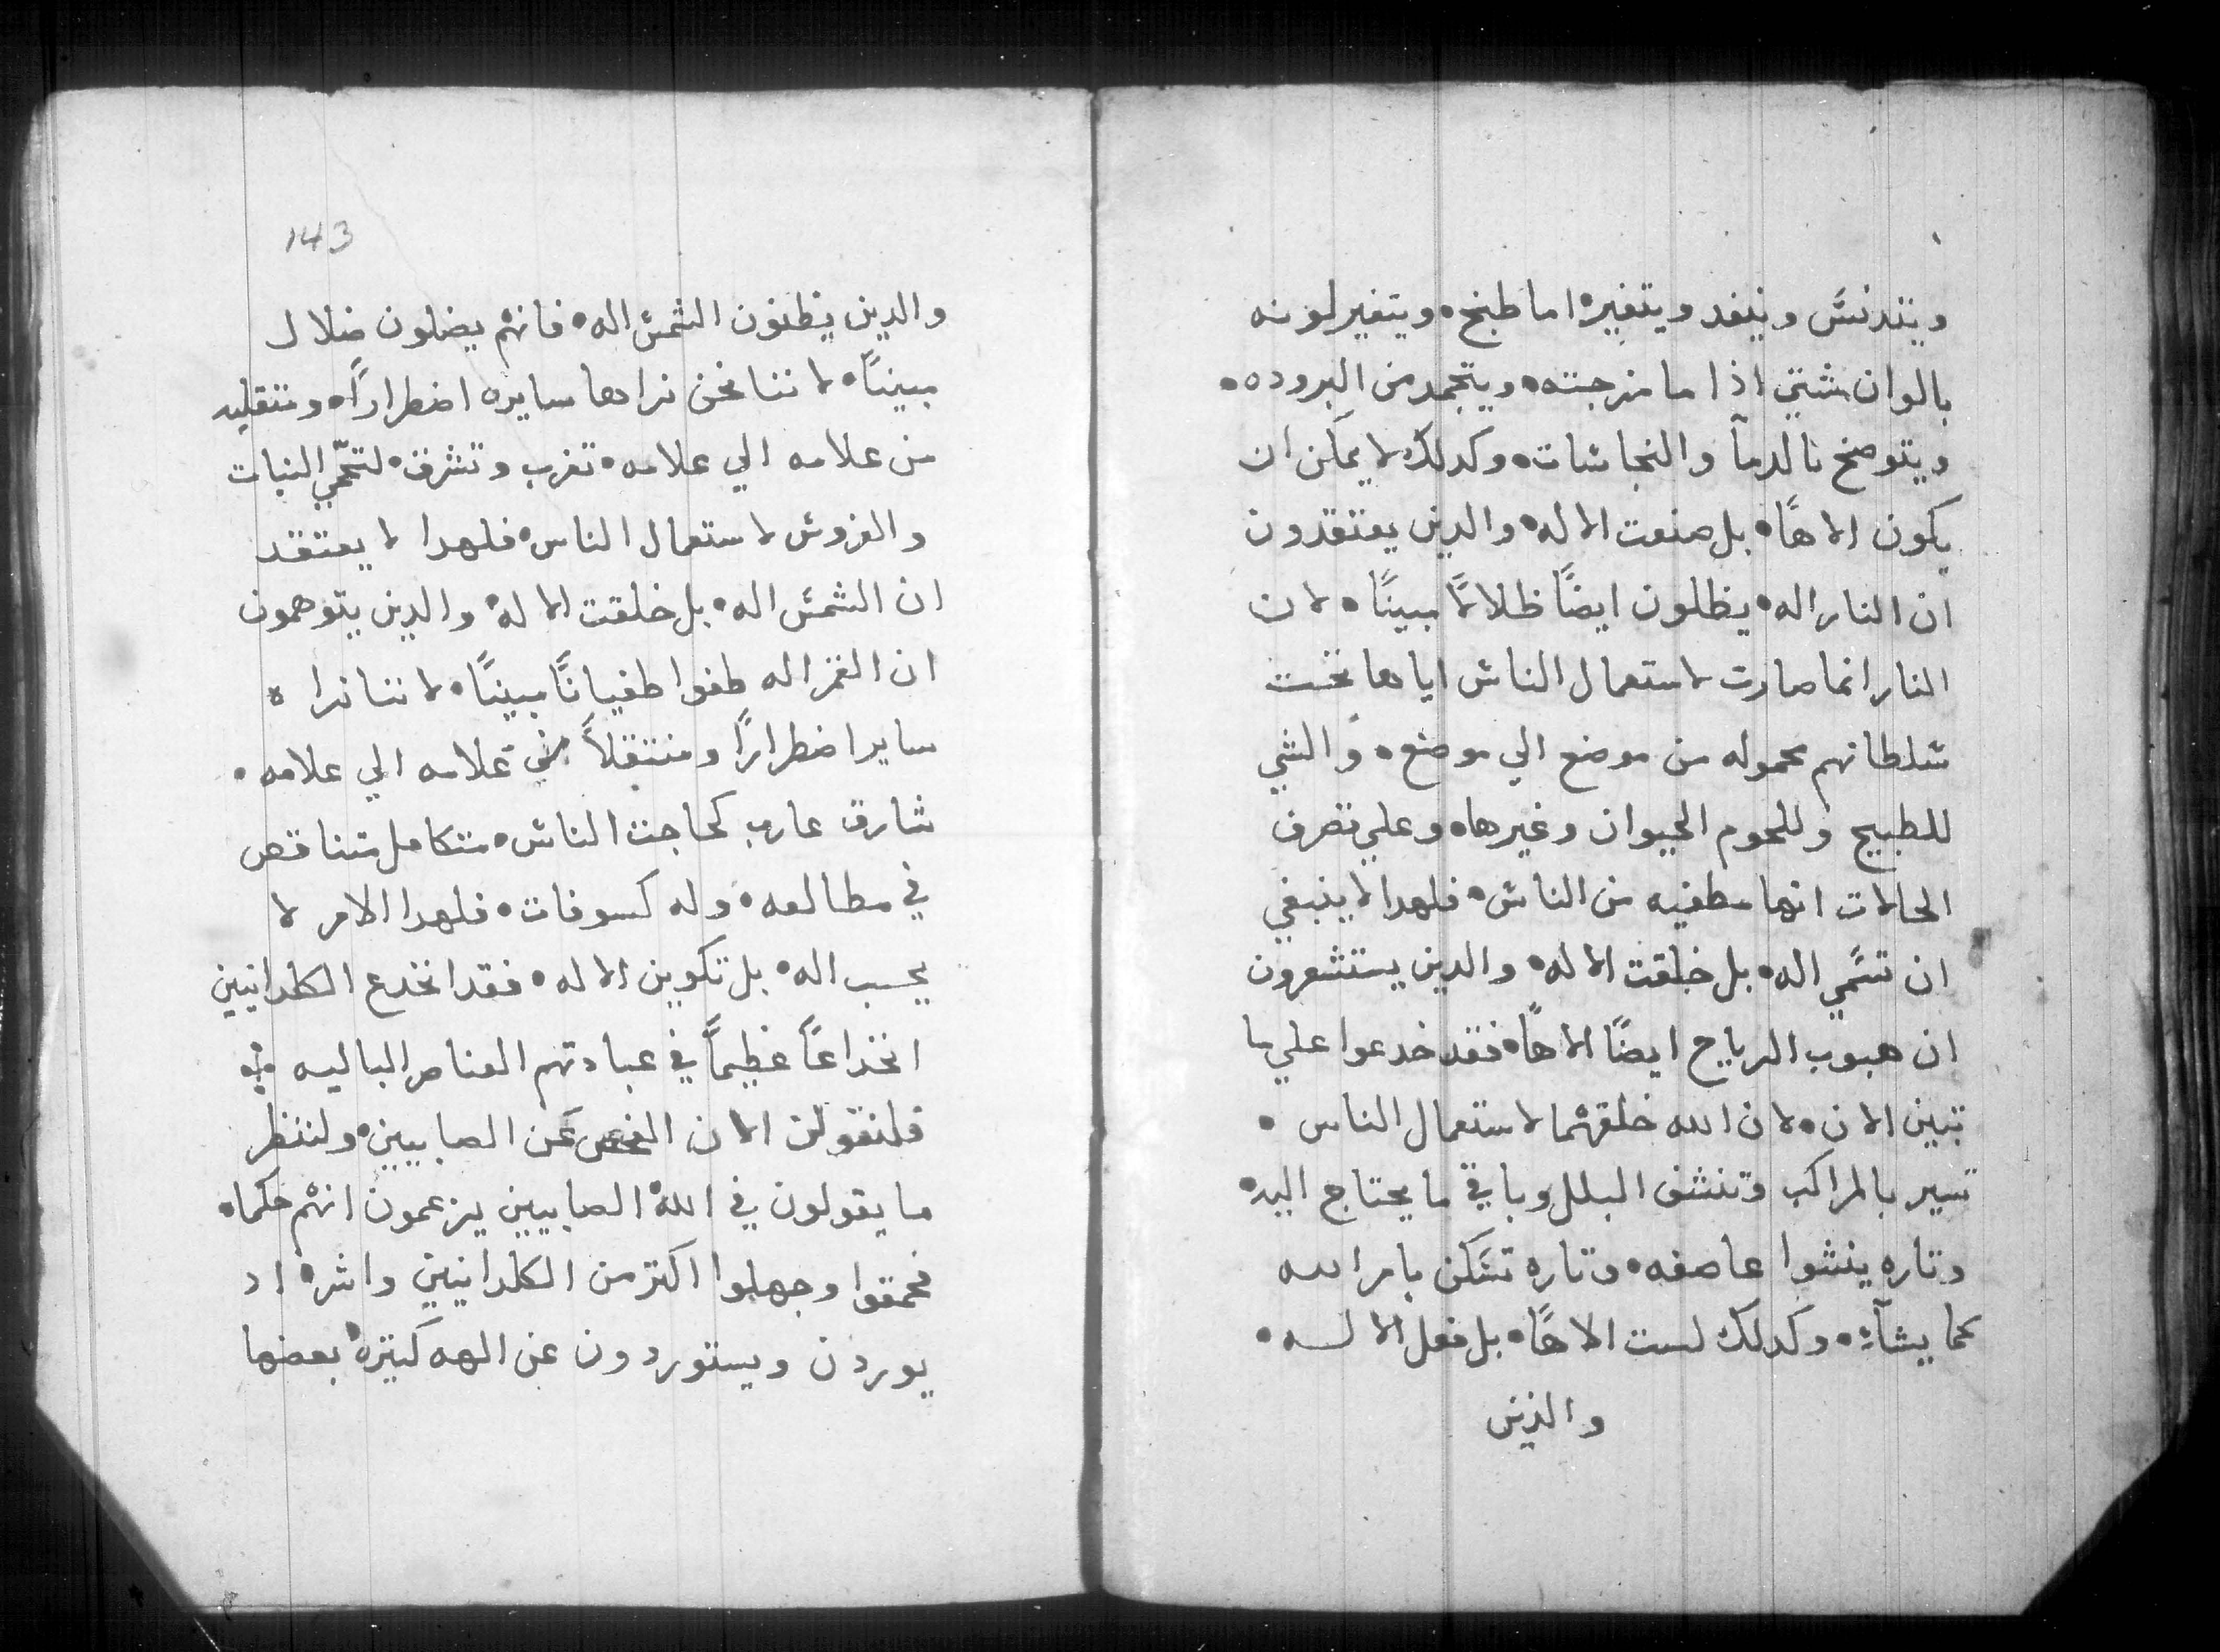 ويتدنسَّ وينفد ويتغيرهٔ اما طبخ • ويتغير لونه
بالوان شتي اذا ما مزجته • ويتجمد من البروده •
ويتوضخ بالدمآ والنجاشات • وكدلك لا يمكن ان
يكون الاهًا • بل صنعت الاله • والدين يعتقدون
ان النار اله • يظلون ايضًا ظلالاً مبينًا • لان
النار انما صارت لاستعمال الناش اياها تحت
شلطانهم محموله من موضع الي موضع • والشي
للطبيخ وللحوم الحيوان وغيرها • وعلي تصرف
الحالات انها مطفيه من الناش • فلهدا لا ينبغي
ان تسَّمي اله • بل خلقت الاله • والدين يستشعرون
ان هبوب الرياح ايضًا الاهًا • فقد خدعوا علي ما
تبين الان • لان الله خلقهما لاستعمال الناس •
تسير بالمراكب وتنشف البلل وباقي ما يحتاج اليه •
وتاره ينشوا عاصفه • وتاره تسَكن بامر الله
كما يشآء • وكدلك لست الاهًا • بل فعل الاله •
والذين
143
والدين يظنون الشمش اله • فانهم يضلون ضلال
مبينًا • لاننا نحن نراها سايره اضطرارًا • ومنتقليه
من علامه الي علامه • تغرب وتشرق • لتحمّي النبات
والغروش لاستعمال الناس • فلهدا لا يعتقد
ان الشمش اله • بل خلقت الاله • والدين يتوهمون
ان القمر اله طغوا طغيانًا مبينًا • لاننا نراه
سايرا ضطرارًا ومنتقلاً من علامه الي علامه •
شارق غارب كحاجت الناش • متكامل متناقص
في مطالعه • وله كسوفات • فلهدا الامر لا
يحسب اله • بل تكوين الاله • فقد انخدع الكلدانيين
انخداعًا عظيمًا في عبادتهم العناصر الباليه
فلنقولن الان الفحص عَن الصابيين • ولننظر
ما يقولون في الله الصابيين يزعمون انهم حكماء
فحمقوا وجهلوا اكتر من الكلدانيين واشره اد
يوردن ويستوردون عن الهه كتيره بعضها